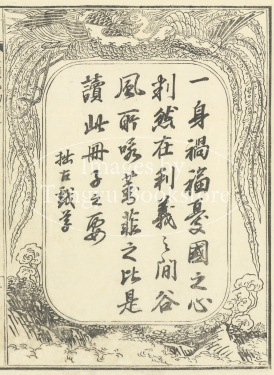 一身禍福憂國之心
判然在利義之間谷
風所咏葑菲之比是
讀此冊子之要
拙古
Images of